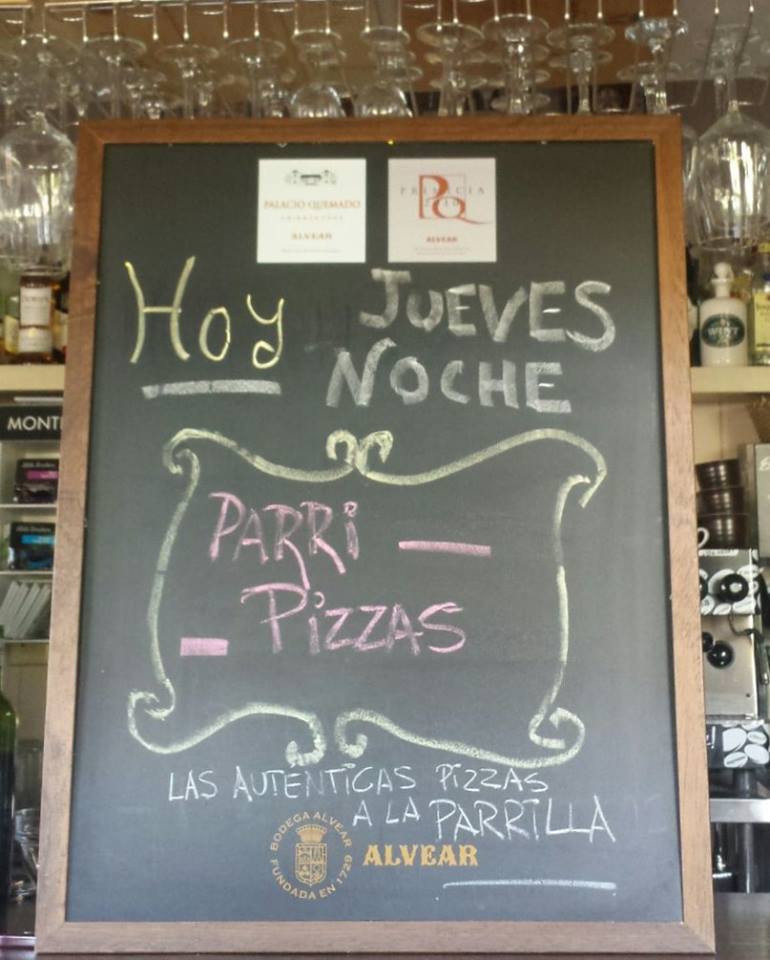 PALACIO QUEMADO
ALVEAR
PRIMICIA
PQ
ALVEAR
Hoy JUEVES
NOCHE
MONT
PARRi —
— PiZZAS
LAS AUTENTiCAS PiZZAS
A LA PARRiLLA
BODEGA ALVEAR
FUNDADA EN 1729
ALVEAR